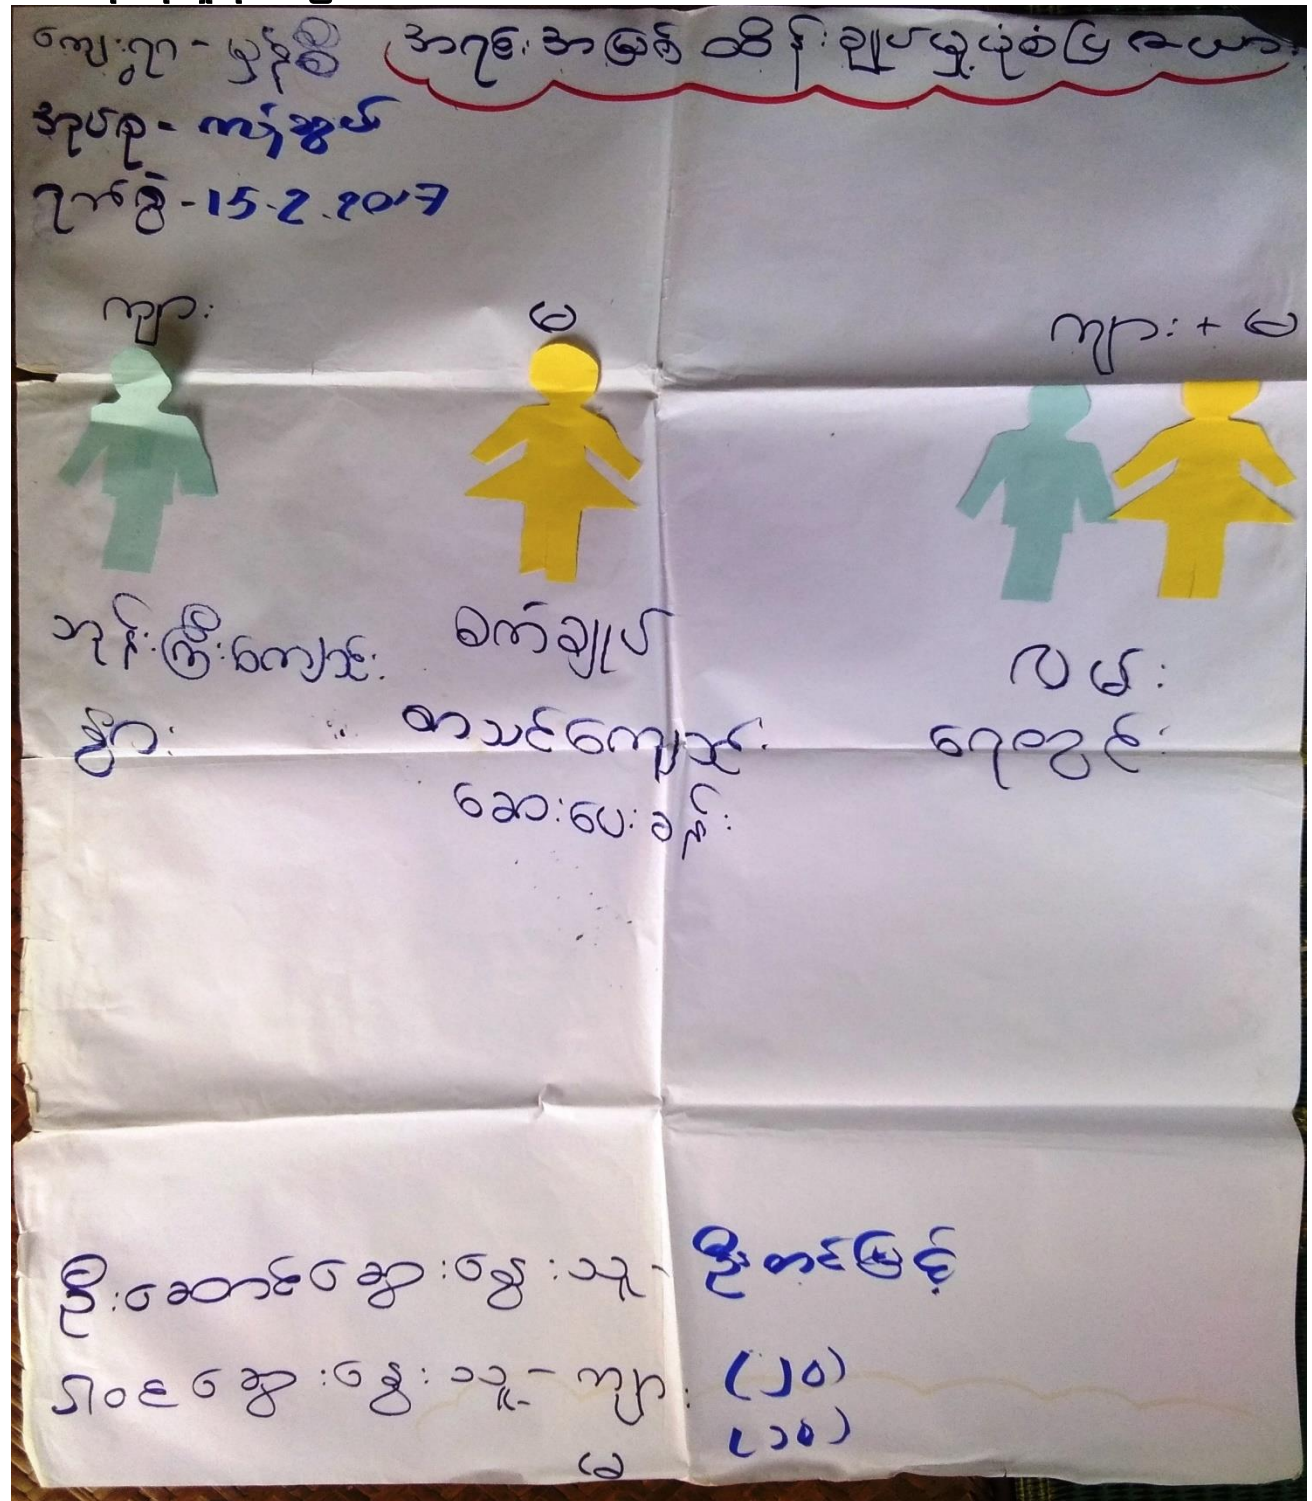 ကျေးရွာ -
အရင်းအမြစ် ထိန်းချုပ်မှု ပုံစံပြ ဇယား
အုပ်စု - ကန့်ဆွယ်
ရက်စွဲ - 15.2.2017
ကျား
မ
ကျား + မ
ဘုန်းကြီးကျောင်း
စက်ချုပ်
လမ်း
နွား
စာသင်ကျောင်း
ရေတွင်း
ဆေးပေးခန်း
ဦးဆောင်ဆွေးနွေးသူ - ဦးတင်မြင့်
ပါဝင်ဆွေးနွေးသူ - ကျား (၂၀)
မ (၁၀)